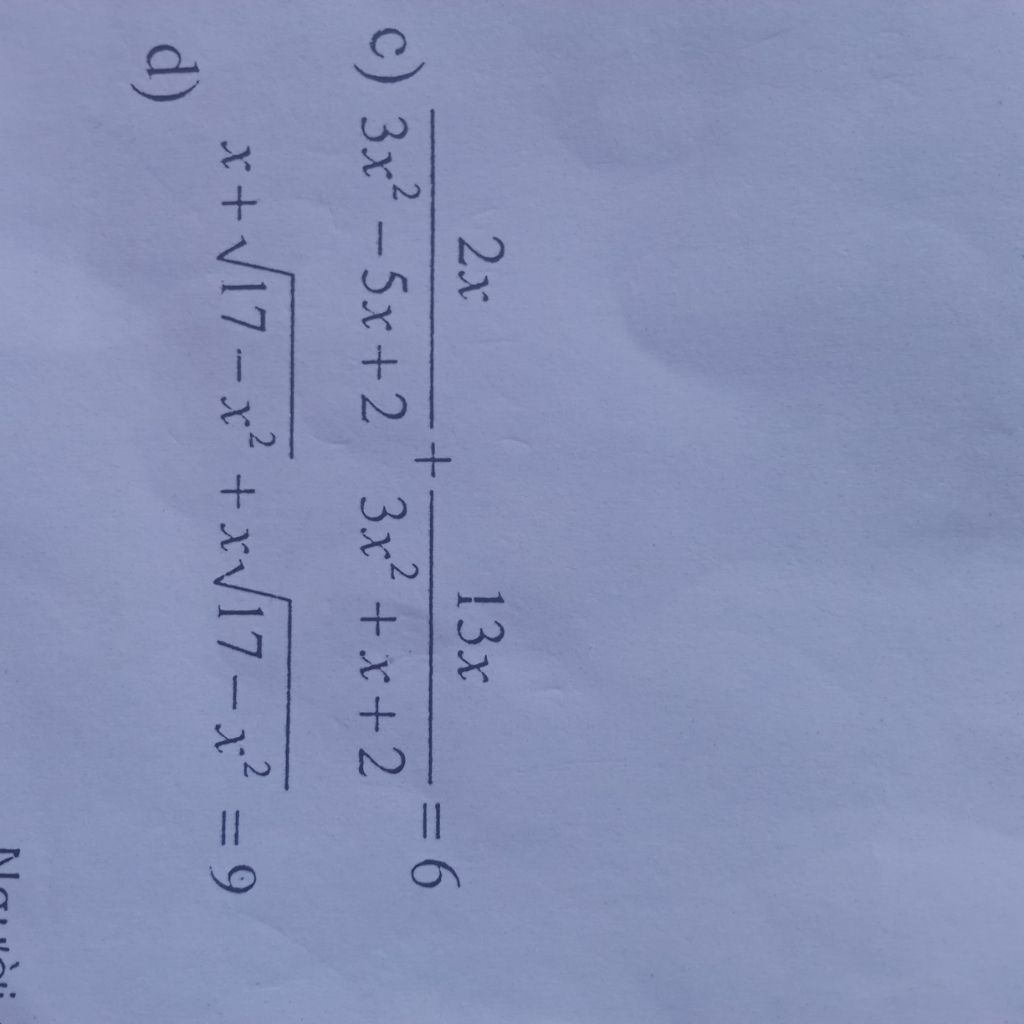 c) \frac{2x}{3x^2 - 5x + 2} + \frac{13x}{3x^2 + x + 2} = 6
d) x + \sqrt{17 - x^2} + x\sqrt{17 - x^2} = 9
Người